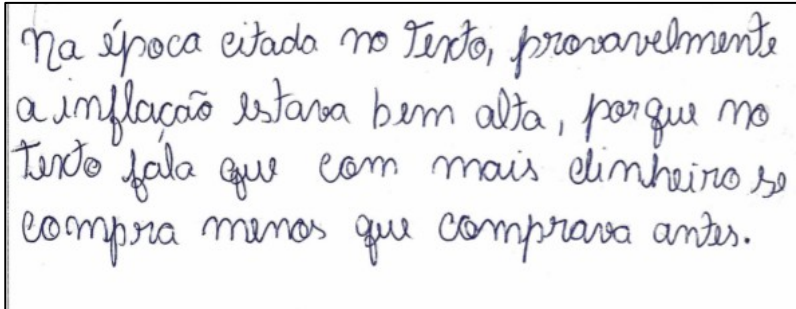 Na época citada no Texto, provavelmente
a inflação estava bem alta, porque no
Texto fala que com mais dinheiro se
compra menos que comprava antes.